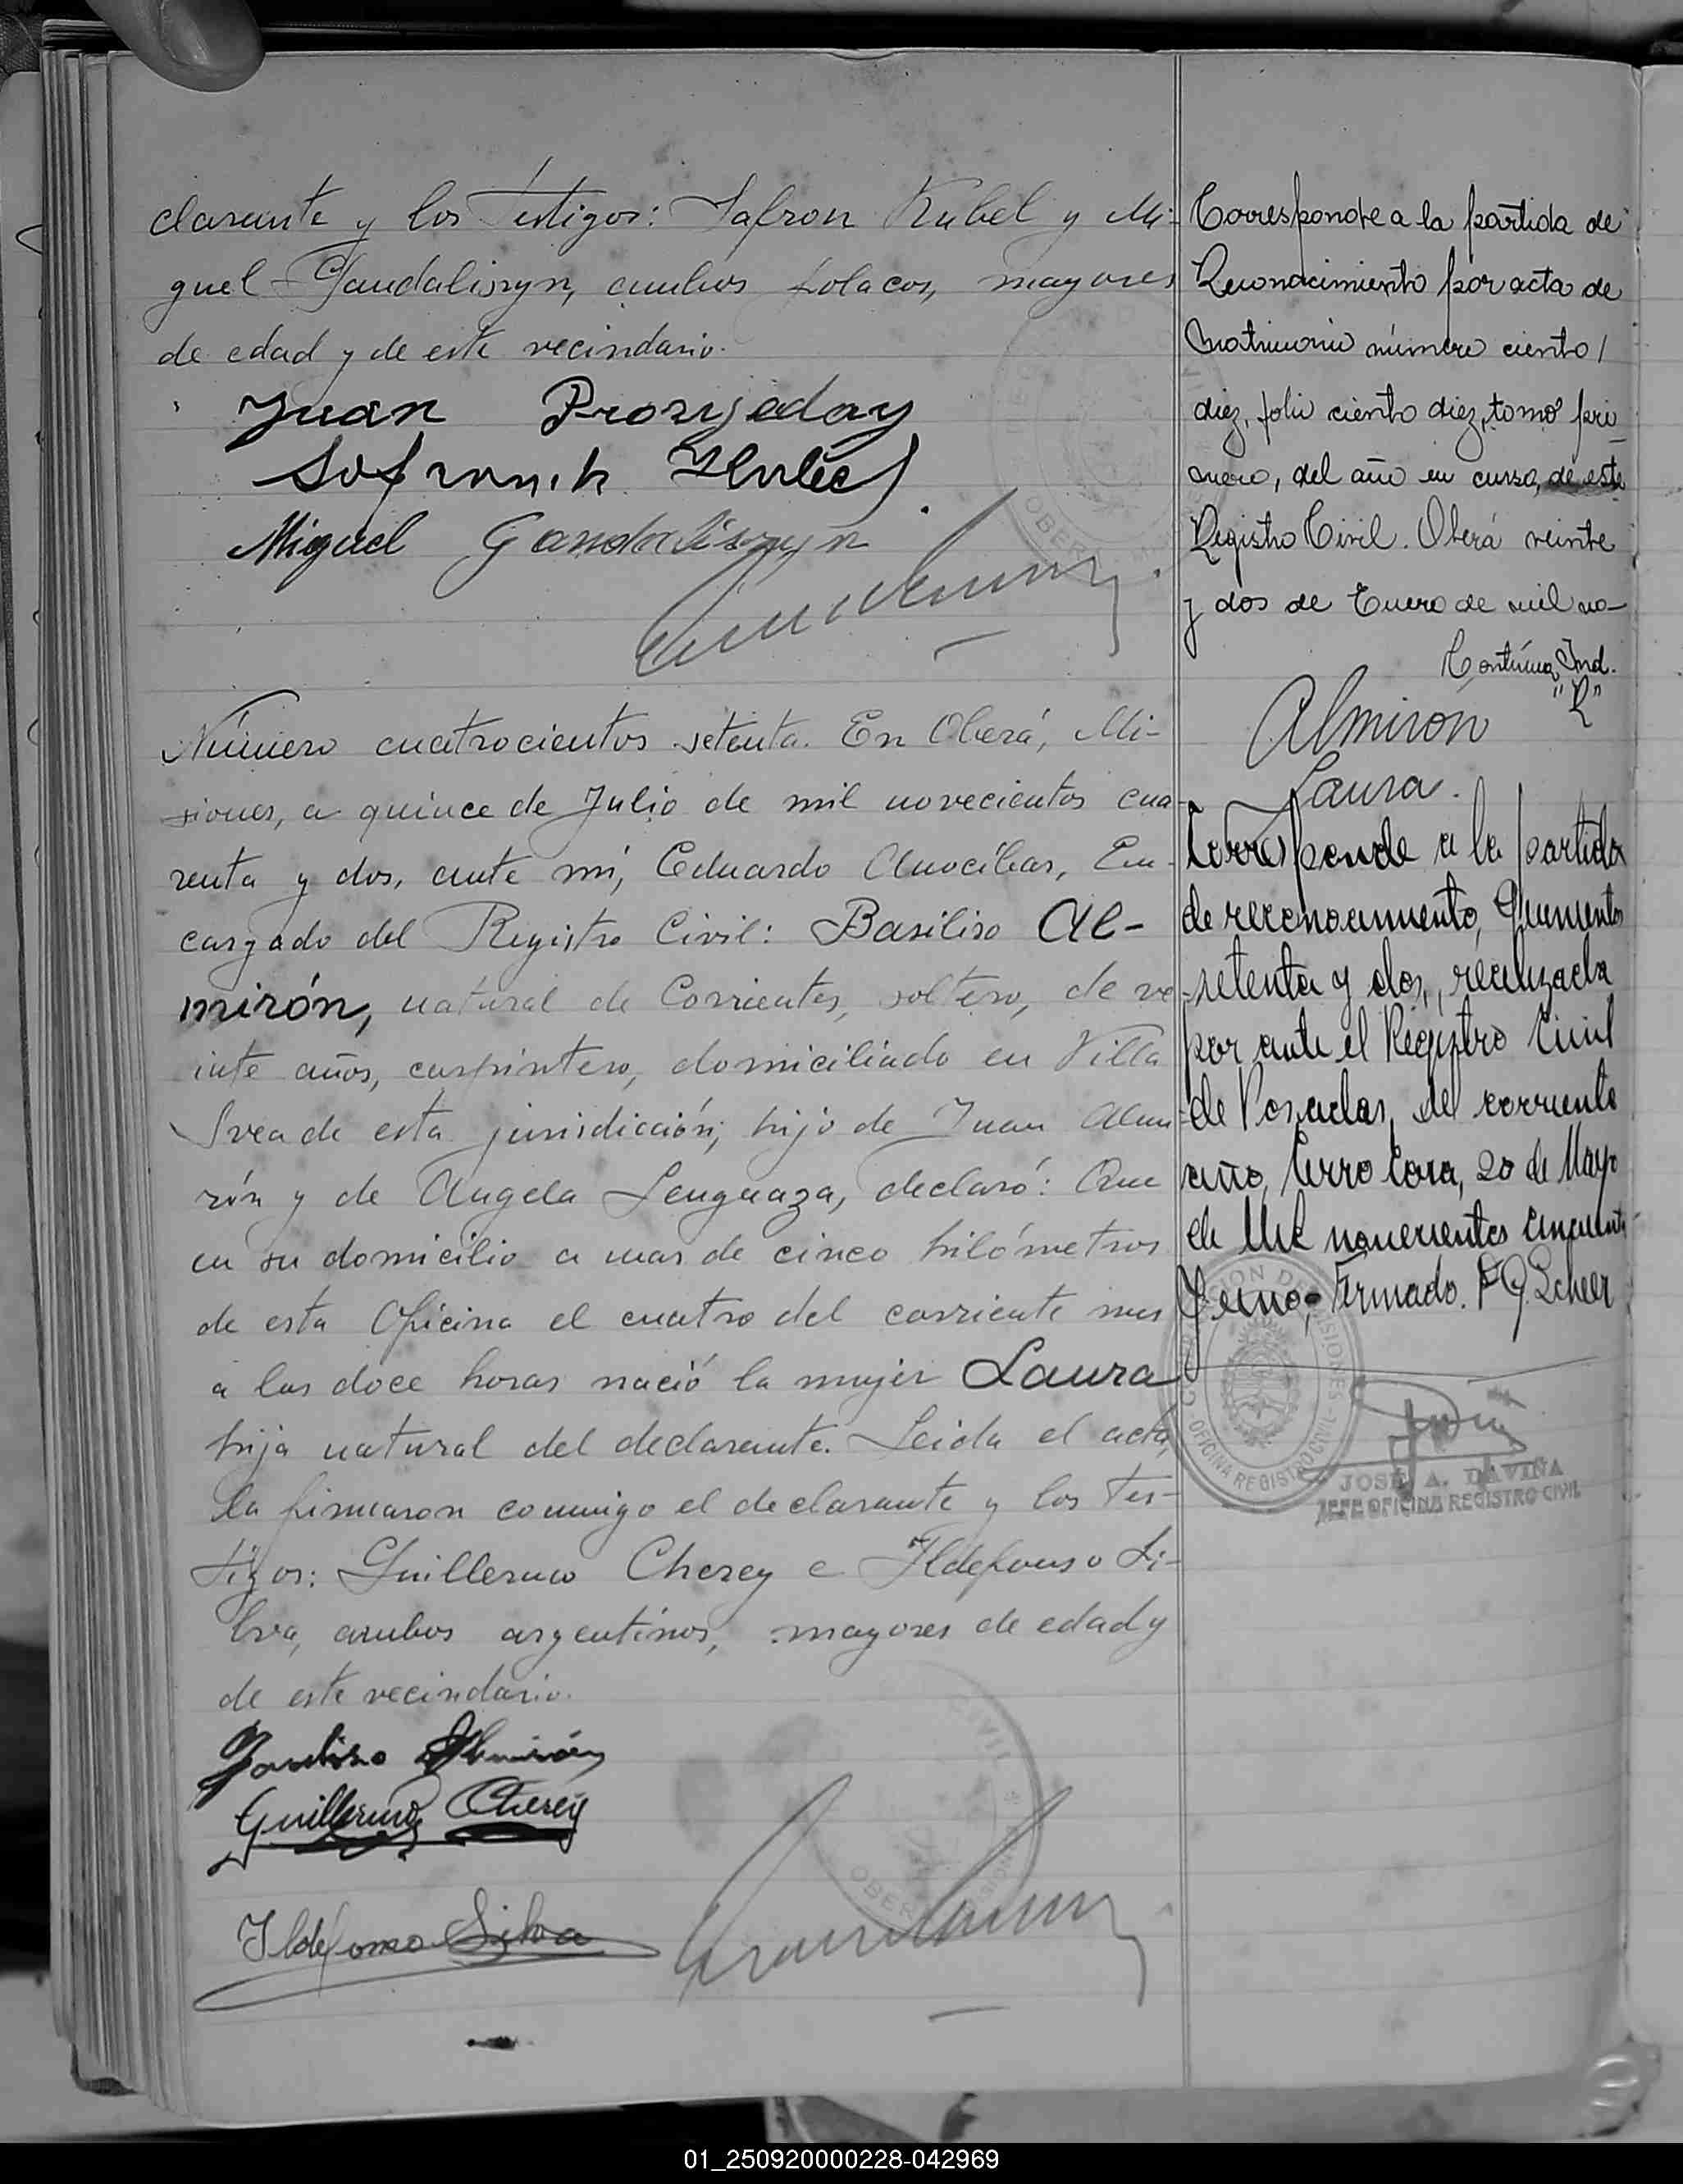 clarante y los Testigos: Safron Kubel y Mi-
guel Gandaliszyn, ambos polacos, mayores
de edad y de este vecindario.
Juan
Miguel Gandaliszyn
Número cuatrocientos setenta. En Oberá, Mi-
siones, a quince de Julio de mil novecientos cua-
renta y dos, ante mí, Eduardo Anocíbar, En-
cargado del Registro Civil: Basiliso Al-
mirón, natural de Corrientes, soltero, de ve
inte años, carpintero, domiciliado en Villa
Svea de esta jurisdicción, hijo de Juan Almi-
rón y de Angela Lenguaza, declaró: Que
en su domicilio a mas de cinco kilómetros
de esta Oficina el cuatro del corriente mes
a las doce horas nació la mujer Laura
hija natural del declarante. Leida el acta,
la firmaron conmigo el declarante y los Tes-
tigos: Guillermo Cherey e Ildefonso Si-
lva, ambos argentinos, mayores de edad y
de este vecindario.
Basiliso Almirón
Guillermo Cherey
Ildefonso Silva
Corresponde a la partida de
Reconocimiento por acta de
matrimonio número ciento
diez, folio ciento diez, tomo pri
mero, del año en curso, de este
Registro Civil. Oberá veinte
y dos de Enero de mil no-
Continúa Ind.
"R"
Almiron
Laura.
Corresponde a la partida
de reconocimiento, Quinientos
setenta y dos, realizada
por ante el Registro Civil
de Posadas, del corriente
año, Cerro Cora, 20 de Mayo
de Mil novecientos cincuenta
y uno, Firmado. P G. Scheer
OFICINA REGISTRO CIVIL
JOSE A. DAVIÑA
JEFE OFICINA REGISTRO CIVIL
01_250920000228-042969